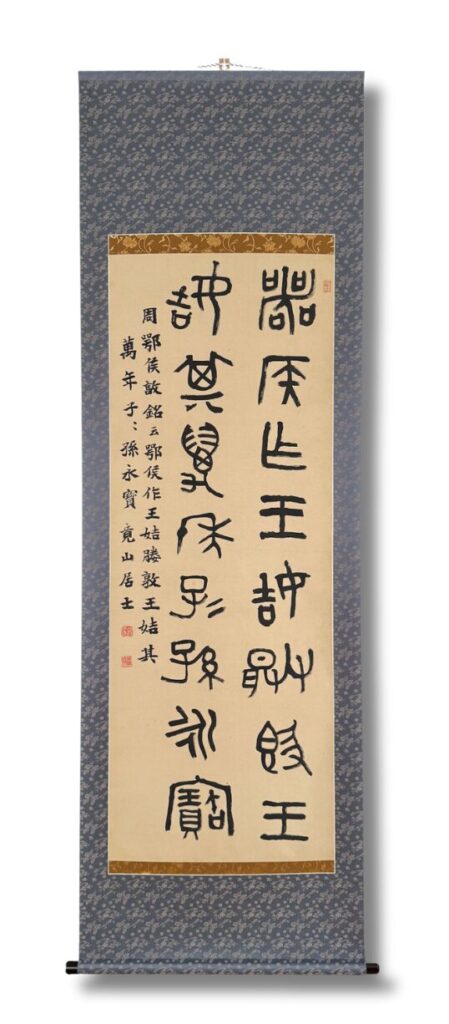 噩侯乍王姞媵𣪘王
姞其萬年子孫永寶
周鄂侯敦銘云鄂侯作王姞媵敦王姞其
萬年子〻孫永寶 竟山居士